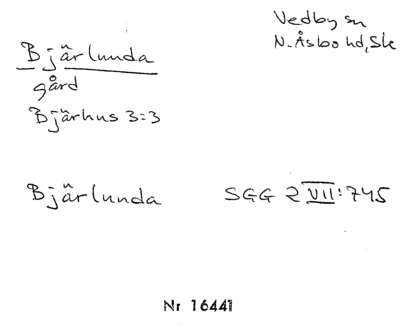 Vedby sn
N. Åsbo hd, Sk
Bjärlunda
gård
Bjärhus 3:3
Bjärlunda SGG 2 VII:745
Nr 16441